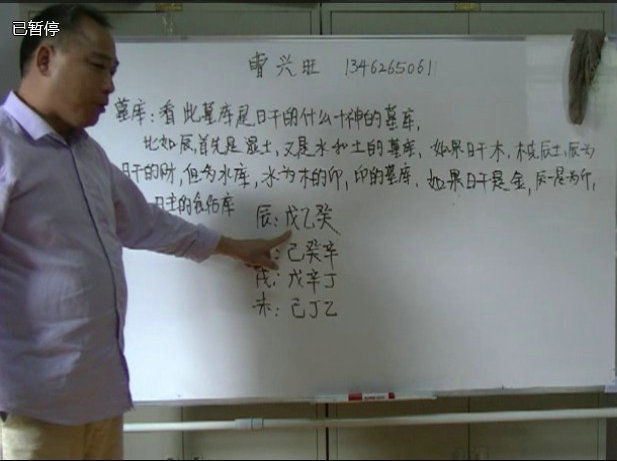 已暂停
曹兴旺 13462650611
墓库：看此墓库是日干的什么十神的墓库，
比如辰，首先是湿土，又是水和土的墓库、如果日干木，木克辰土，辰为
日干的财，但为水库，水为木的印，印的墓库、如果日干是金，辰是为印，
日主的食伤库
辰：戊乙癸
：己癸辛
戌：戊辛丁
未：己丁乙